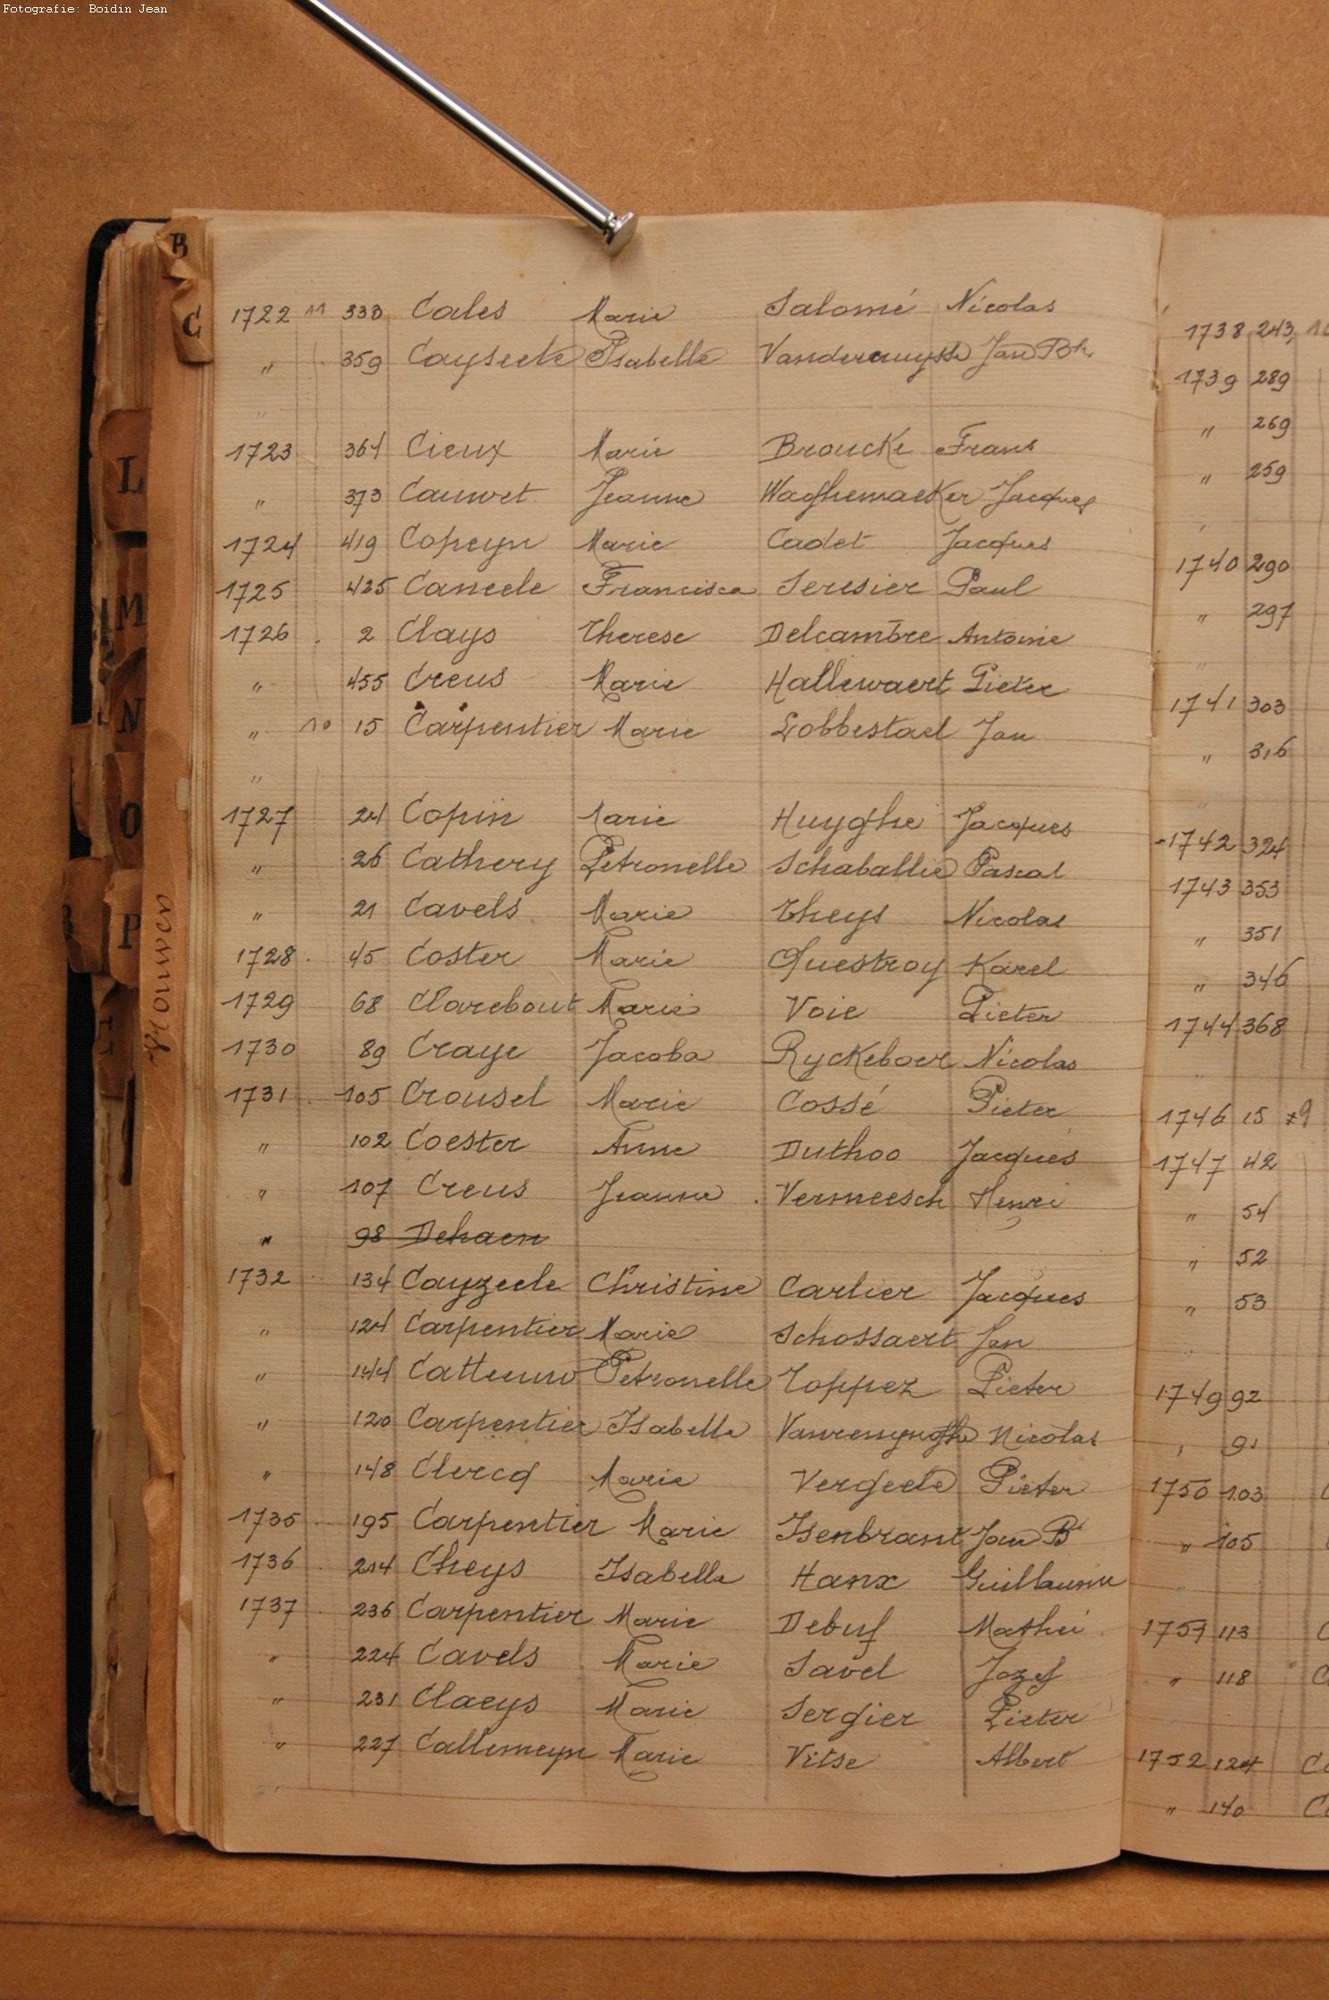 Fotografie: Boidin Jean
B
C
L
M
N
O
P
Vrouwen
1722 11 333 Cales Marie Salomé Nicolas
" 359 Cayseele Isabelle Jan Bte
"
1723 364 Cieux Marie Broucke Frans
" 373 Cauwet Jeanne Waghemaeker Jacques
1724 419 Copeyn Marie Cadet Jacques
1725 425 Caneele Francisca Seresier Paul
1726 . 2 Clays Therese Delcambre Antoine
" 455 Creus Marie Hallewaert Pieter
" 10 15 Carpentier Marie Lobbestael Jan
"
1727 24 Copin Marie Huyghe Jacques
" 26 Cathery Petronelle Schaballie Pascal
" 21 Cavels Marie Theys Nicolas
1728 . 45 Coster Marie Questroy Karel
1729 68 Clarebout Marie Voie Pieter
1730 89 Craye Jacoba Ryckeboer Nicolas
1731 . 105 Crousel Marie Cossé Pieter
" 102 Coester Anne Duthoo Jacques
" 107 Creus Jeanne . Vermeesch Henri
" 98 Dehaen
1732 134 Cayzeele Christine Carlier Jacques
" 124 Carpentier Marie Schossaert Jan
" 144 Catteuw Petronelle Toppez Pieter
" 120 Carpentier Isabelle Nicolas
" 148 Clercq Marie Pieter
1735 . 195 Carpentier Marie Isenbrant Jan Bt
1736 . 214 Cheys Isabelle Hanx Guillaume
1737 . 236 Carpentier Marie Debuf Mathei
" 224 Cavels Marie Savel Jozef
" 231 Claeys Marie Sergier Pieter
" 227 Callemeyn Marie Vitse Albert
"
1738 243
1739 289
" 269
" 259
"
1740 290
" 297
"
1741 303
" 316
"
1742 324
1743 353
" 351
" 346
1744 368
"
1746 15
1747 42
" 54
" 52
" 53
"
1749 92
" 91
1750 103
" 105
"
113
" 118
1752 124
" 140